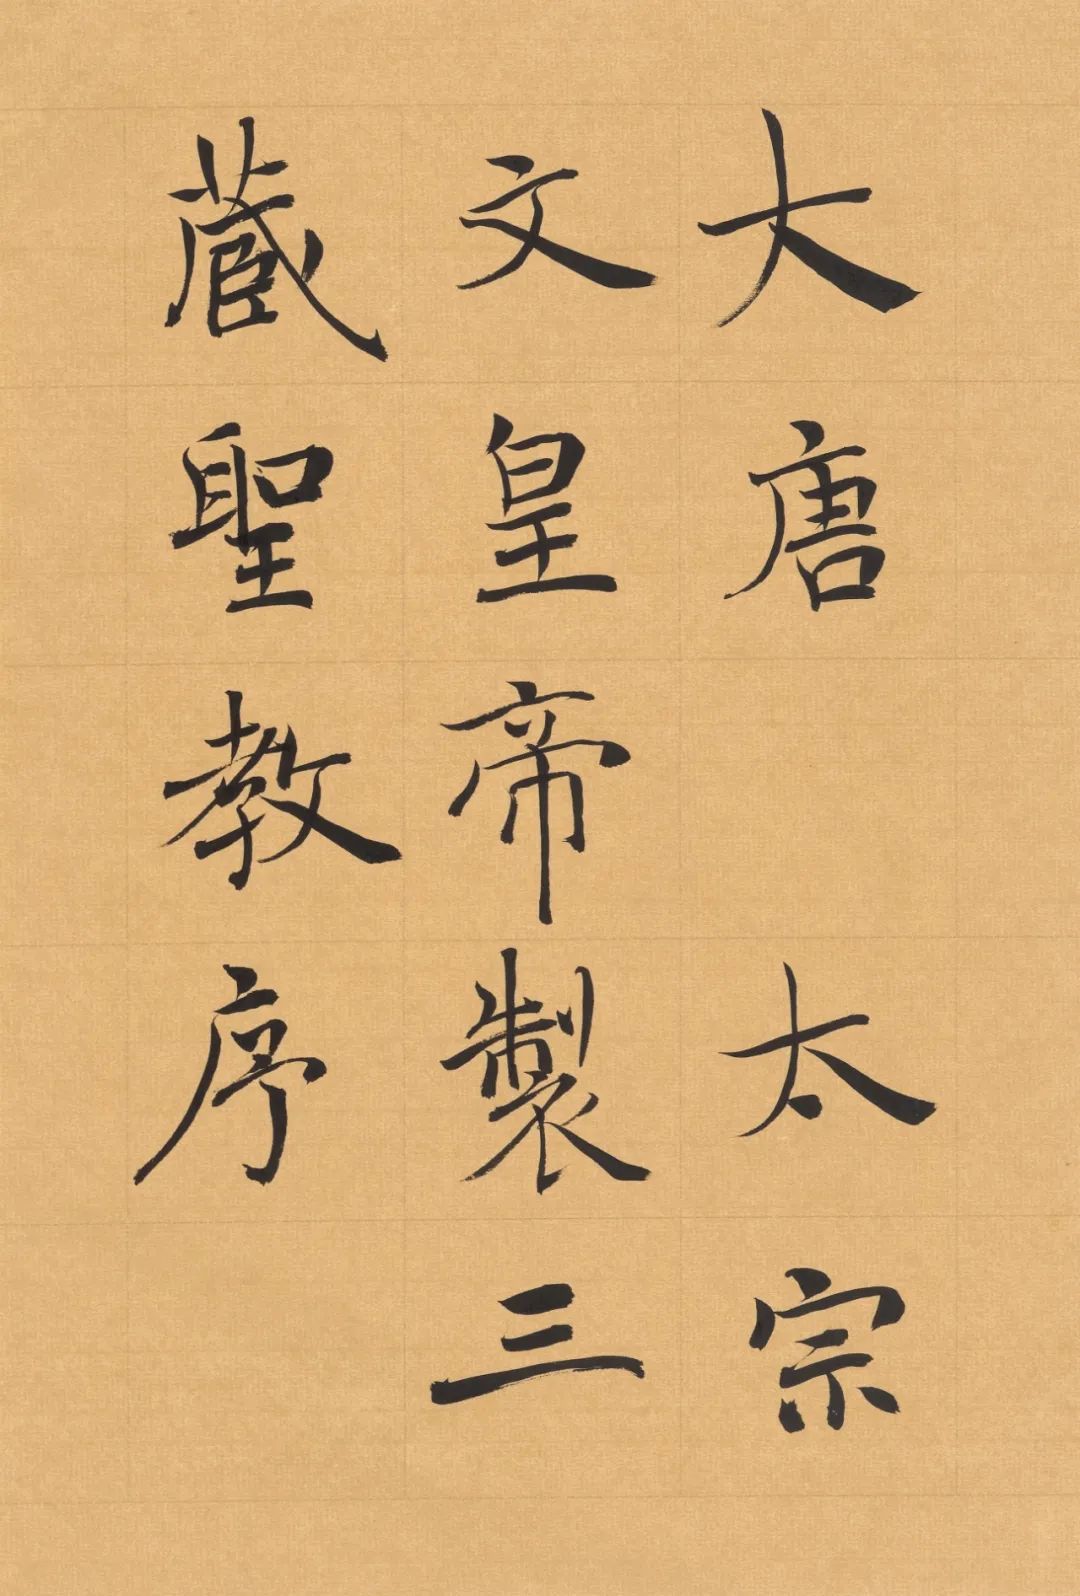 大唐 太宗
文皇帝製三
藏聖教序